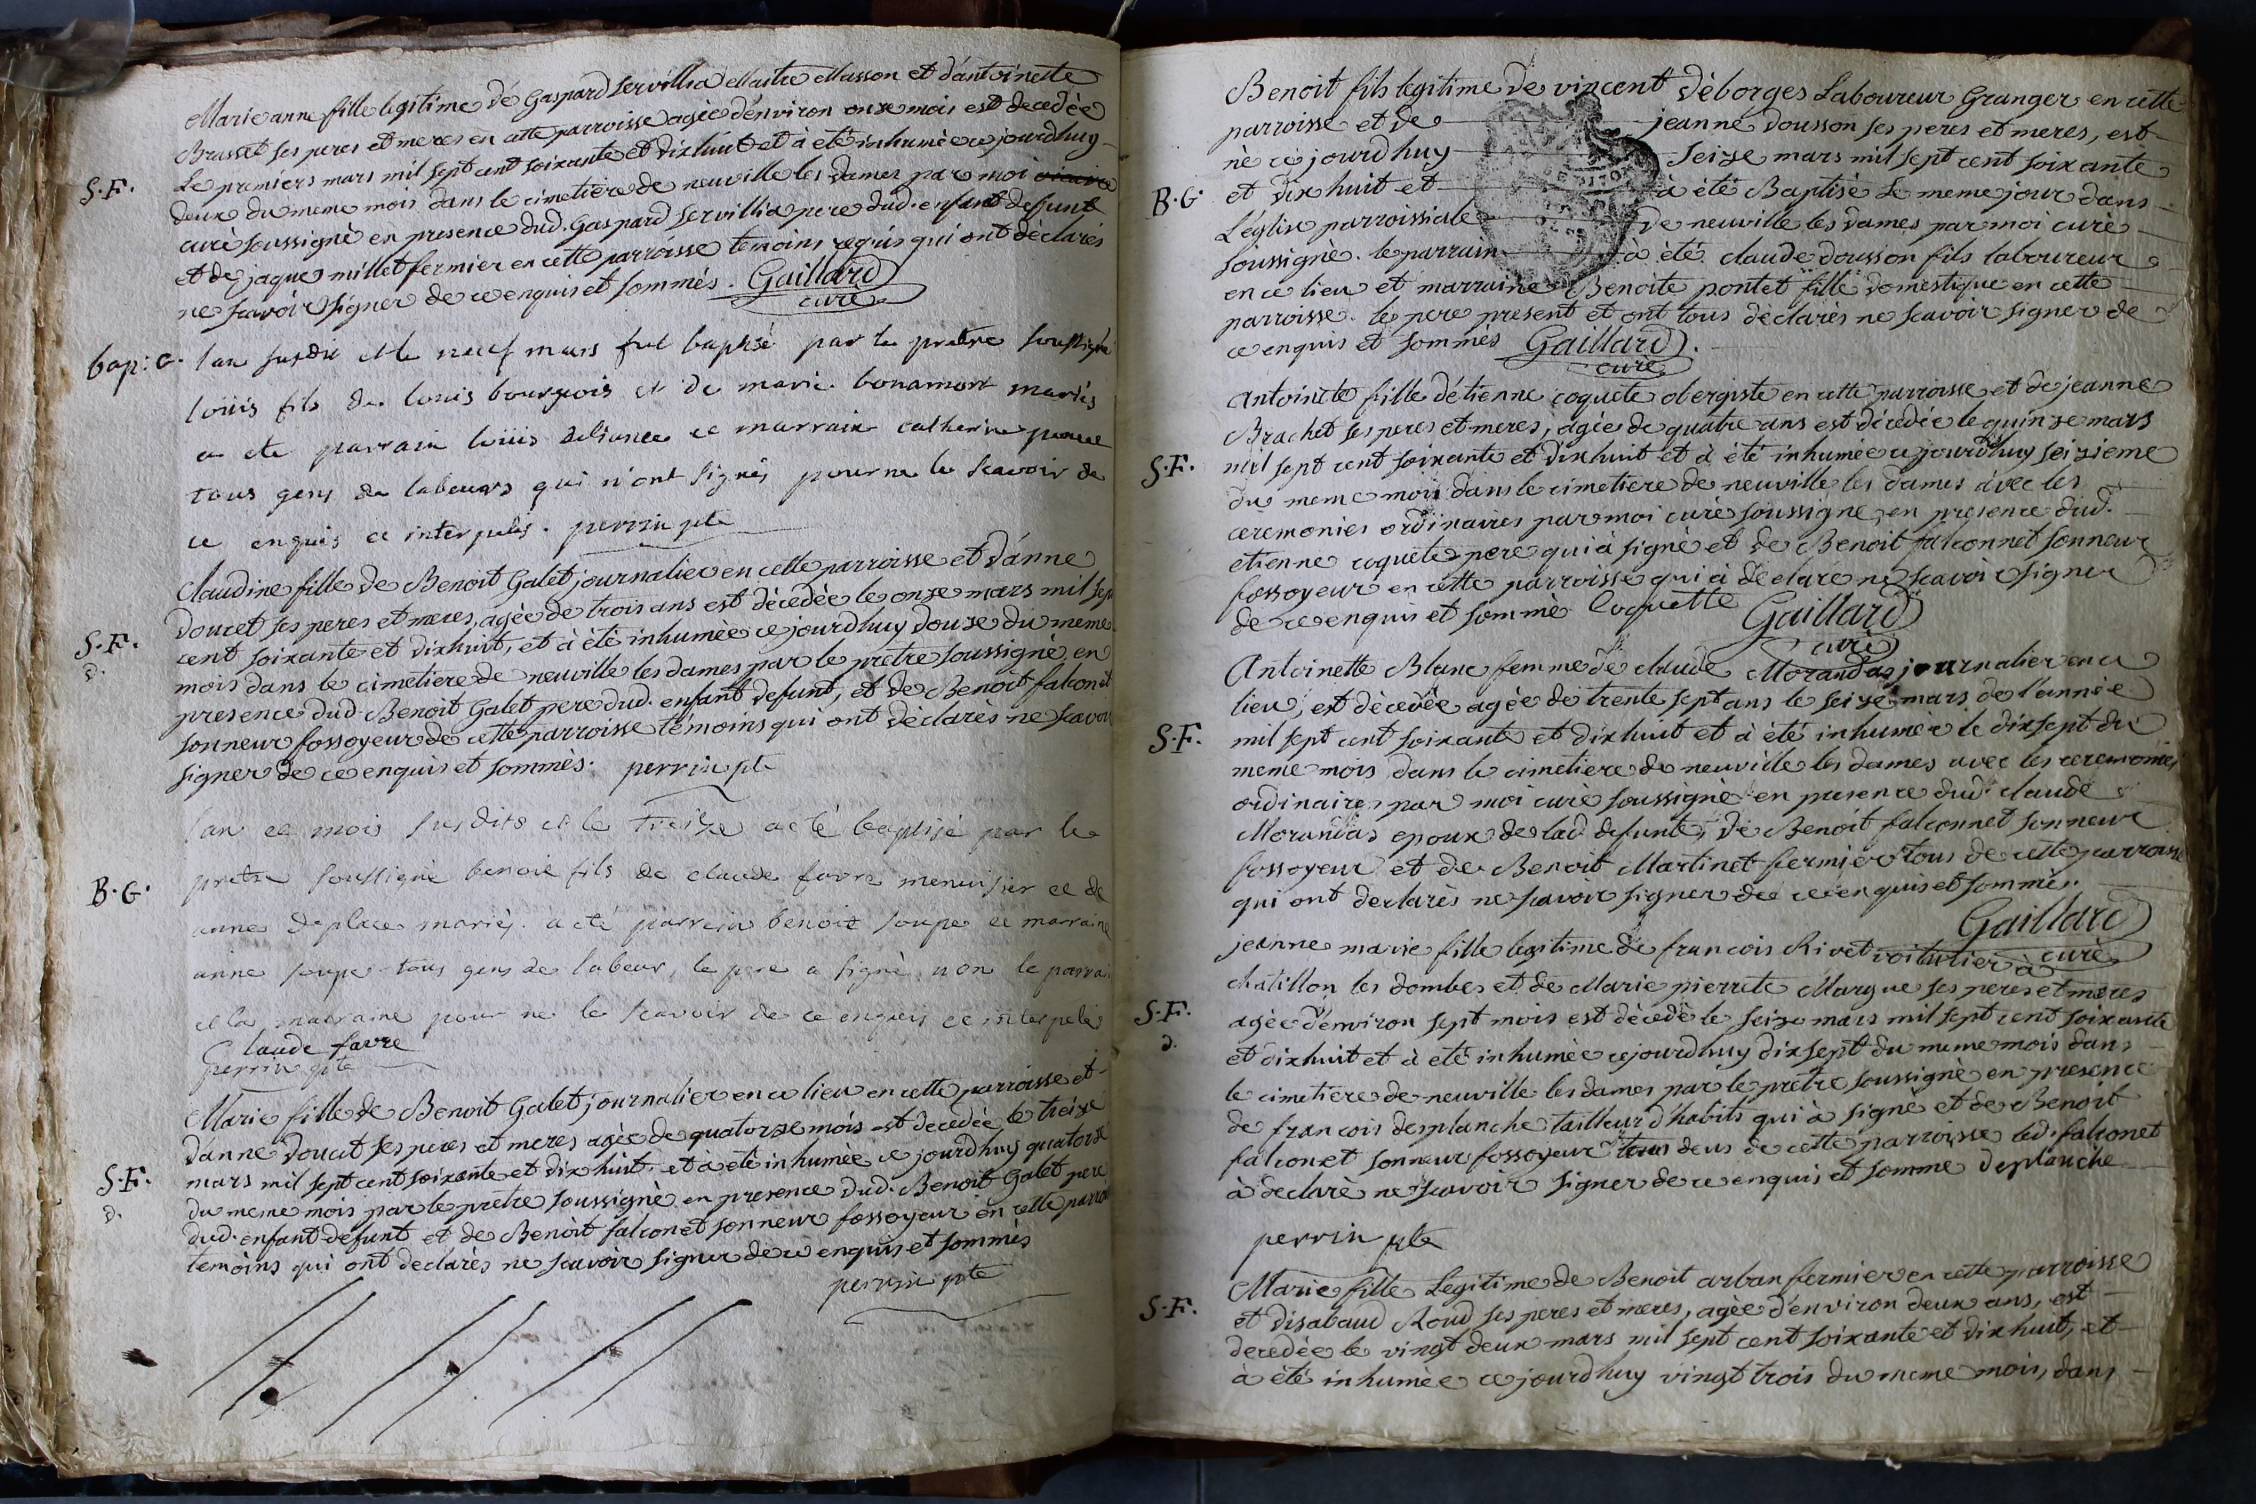 Marie anne fille legitime de Gaspard Servillia Maitre Masson et d'antoinette
Brasset ses peres et meres en cette parroisse agée d'environ onze mois est decedée
S.F.
Le premiers mars mil sept cent soixante et dixhuit et à eté inhumée ce jourdhuy
deux du meme mois dans le cimetiere de neuville les dames par moi vicaire
curé soussigné en presence dud. Gaspard Servillia pere dud. enfant defunt
et de jaque millet fermier en cette parroisse temoins requis qui ont déclarés
ne scavoir signer de ce enquis et sommés. Gaillard
curé
bap: G.
l'an susdit et le neuf mars fut baptisé par le pretre soussigné
loüis fils de louis bourgeois et de marie bonamort mariés
a ete parrain loüis et marraine catherine
tous gens de labeurs qui n'ont signés pour ne le scavoir de
ce enquis et interpelés. perrin ptre
Claudine fille de Benoit Galet journalier en cette parroisse et d'anne
doucet ses peres et meres, agée de trois ans est décédée le onze mars mil sept
S.F.
d.
cent soixante et dixhuit, et à été inhumée ce jourdhuy douze du meme
mois dans le cimetiere de neuville les dames par le pretre soussigné en
presence dud. Benoit Galet pere dud. enfant defunt, et de Benoit falconet
sonneur fossoyeur de cette parroisse témoins qui ont déclarés ne scavoir
signer de ce enquis et sommés. perrin ptre
l'an et mois susdits et le treize a eté baptisé par le
B.G.
pretre soussigné benoit fils de claude favre menuisier et de
anne deplace mariés. a eté parrein benoit soupe et marraine
anne soupe tous gens de labeur, le pere a signé, non le parrai
et la marraine pour ne le scavoir de ce enquis et interpelés
Claude favre
perrin ptre
Marie fille de Benoit Galet journalier en ce lieu en cette parroisse et
d'anne doucet ses peres et meres agée de quatorze mois est decedée le treize
S.F.
d.
mars mil sept cent soixante et dix huit. et à eté inhumée ce jourdhuy quatorze
du meme mois par le pretre soussigné en presence dud. Benoit Galet pere
dud. enfant defunt et de Benoit falconet sonneur fossoyeur en cette parroi
temoins qui ont declarés ne scavoir signer de ce enquis et sommés
perrin ptre
Benoit fils legitime de vincent déborges Laboureur Granger en cette
parroisse et de jeanne dousson ses peres et meres, est
né ce jourdhuy seize mars mil sept cent soixante
B.G.
et dix huit et à été Baptisé le meme jour dans
L'église parroissiale de neuville les dames par moi curé
soussigné. le parrain à été claude dousson fils laboureur
en ce lieu et marraine Benoite pontet fille domestique en cette
parroisse. le pere present et ont tous déclarés ne scavoir signer de
ce enquis et sommés Gaillard
curé
Antoinete fille d'étienne coquete obergiste en cette parroisse et de jeanne
Brachet ses peres et meres, agée de quatre ans est décédée le quinze mars
S.F.
mil sept cent soixante et dixhuit et à été inhumée ce jourdhuy seizieme
du meme mois dans le cimetiere de neuville les dames avec les
ceremonies ordinaires par moi curé soussigné, en presence dud.
etienne coquete pere qui à signé et de Benoit falconnet sonneur
fossoyeur en cette parroisse qui à déclaré ne scavoir signer
de ce enquis et sommé Coquette Gaillard
curé
Antoinette Blanc femme de claude Morandas journalier en ce
lieu, est décedée agée de trente sept ans le seize mars de l'année
S.F.
mil sept cent soixante et dixhuit et à été inhumée le dixsept du
meme mois dans le cimetiere de neuville les dames avec les ceremonies
ordinaires par moi curé soussigné en presence dud. claude
Morandas epoux de lad. defunte, de Benoit falconnet sonneur
fossoyeur et de Benoit Martinet fermier tous de cette parroisse
qui ont declarés ne scavoir signer de ce enquis et sommés.
Gaillard
curé
jeanne marie fille legitime de francois Rivet voiturier à
chatillon les dombes et de Marie pierrete Margue ses peres et meres
S.F.
d.
agée d'environ sept mois est décédé le seize mars mil sept cent soixante
et dixhuit et à été inhumée ce jourdhuy dixsept du meme mois dans
le cimetiere de neuville les dames par le pretre soussigné en presence
de francois desplanche tailleur d'habits qui à signé et de Benoit
falconet sonneur fossoyeur tous deus de cette parroisse led. falconet
à declaré ne scavoir signer de ce enquis et sommé deplanche
perrin ptre
Marie fille Legitime de Benoit arban fermier en cette parroisse
S.F.
et disabaud Roud ses peres et meres, agée d'environ deux ans, est
decedée le vingt deux mars mil sept cent soixante et dixhuit, et
à été inhumée ce jourdhuy vingt trois du meme mois, dans